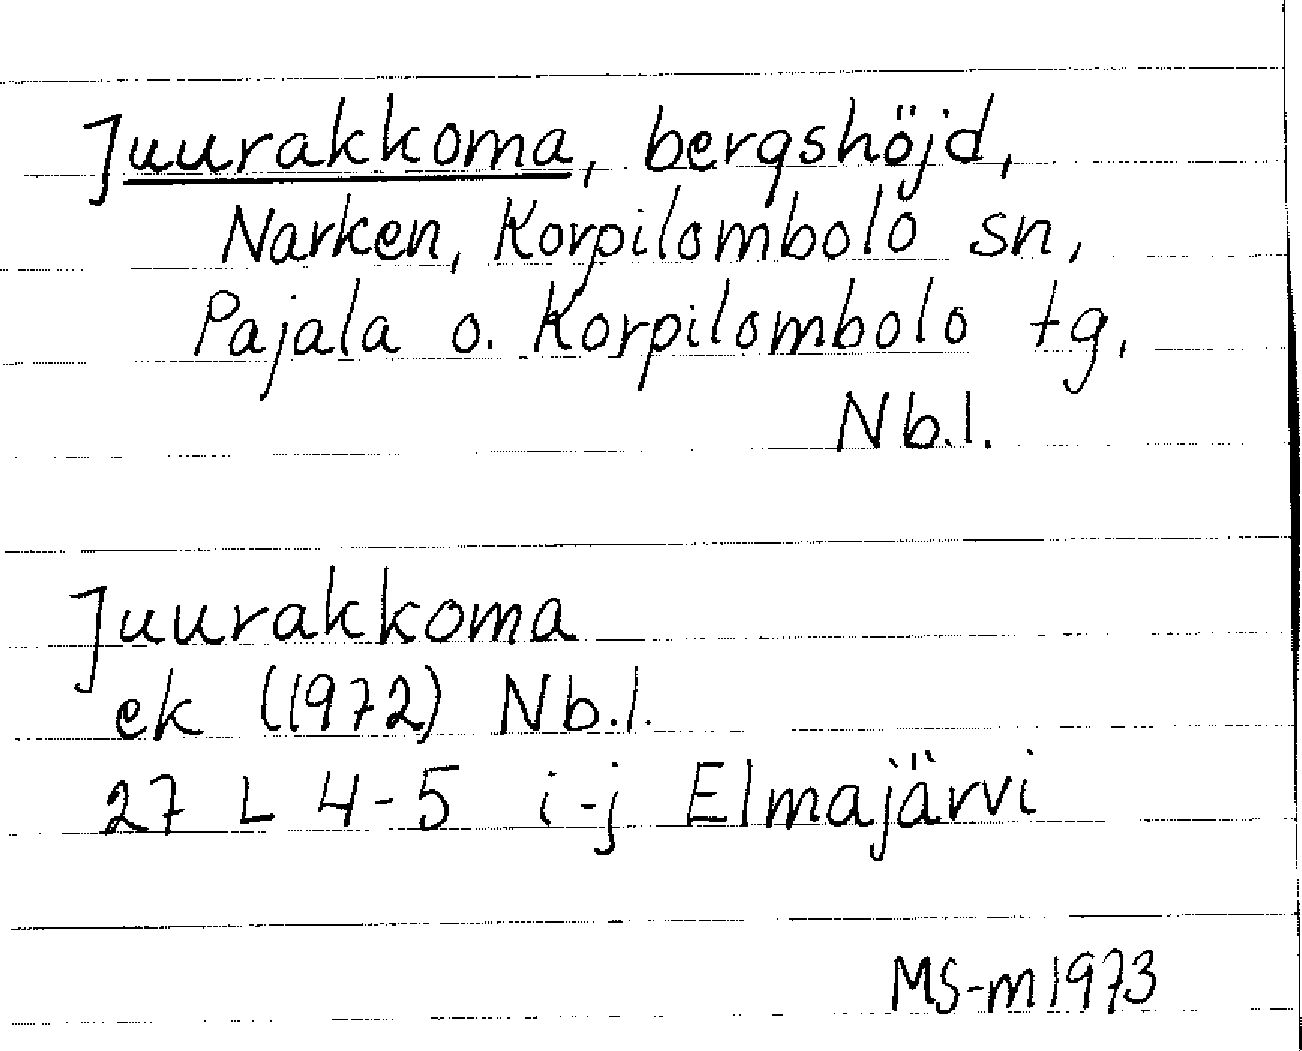 Juurakkoma, bergshöjd,
Narken, Korpilombolo sn,
Pajala o. Korpilombolo tg,
Nb.l.
Juurakkoma
ek (1972) Nb.l.
27 L 4-5 i-j Elmajärvi
MS-m 1973